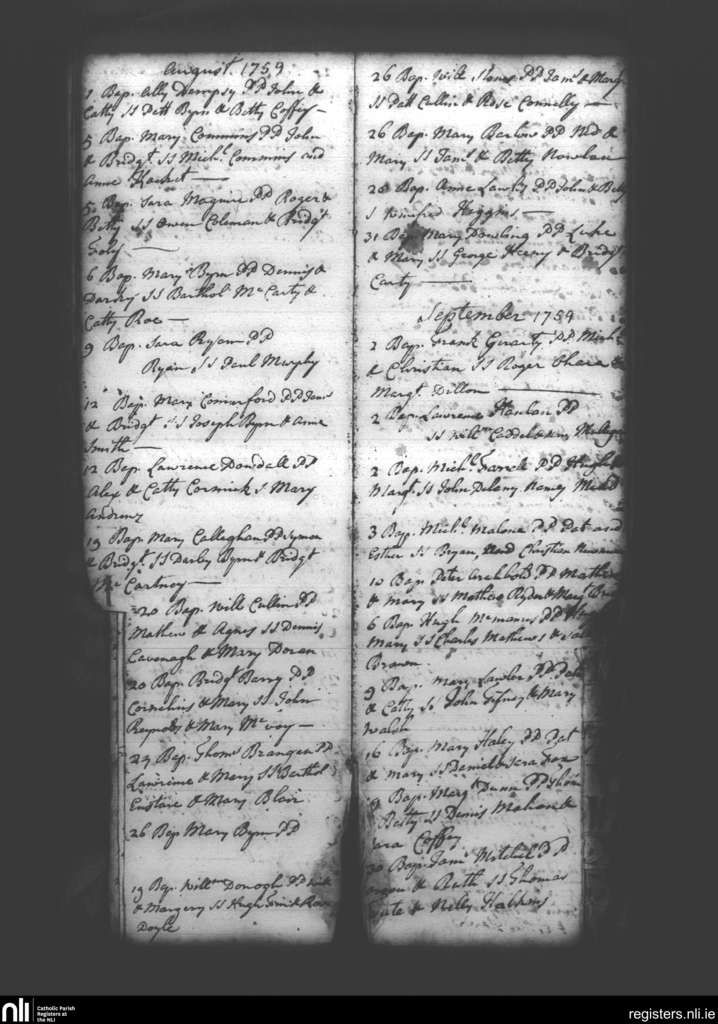 August 1759
1 Bap. Ally Dempsy PP John &
Catty SS Patt Byrn & Betty Coffey
5 Bap. Mary Commins PP John
& Bridgt. SS Michl. Commins and
Anne
5 Bap. Sara Maguire PP Roger &
Betty SS Owen Coleman & Bridgt
Foly
6 Bap. Mary Byrn PP Dennis &
Darky SS Barthol. Mc Carty &
Catty Roe
9 Bap. Sara Ryson PP
Ryan SS Paul Murphy
12 Bap. Mary Comerford PP James
& Bridgt SS Joseph Byrn & Anne
Smith
12 Bap. Lawrence Dowdall PP
Alex & Catty Cormick S Mary
Andrews
19 Bap. Mary Callaghan PP Symon
& Bridgt. SS Darby Byrn & Bridgt
Mc Cartney
20 Bap. Will Cullin PP
Mathew & Agnes SS Dennis
Cavenagh & Mary Doran
20 Bap. Bridgt Barry PP
Cornelius & Mary SS John
Reynolds & Mary Mc voy
24 Bap. Thoms Brangan PP
Lawrence & Mary SS Barthol
Eustace & Mary Blair
26 Bap Mary Byrn PP
19 Bap. Willm Donogh PP
& Margery SS Hugh & Rose
Doyle
26 Bap. Will Stones PP Jams & Mary
SS Patt Cullin & Rose Connelly
26 Bap. Mary Barlow PP Ned &
Mary SS Jams & Betty Nowlan
28 Bap. Anne Lawly PP John & Betty
S Winifred Higgins
31 Bap Mary Dowling PP Luke
& Mary SS George Henry & Bridgt
Carty
September 1759
2 Bap. Frank Gerarty PP Mich
& Christian SS Roger Ohara &
Margt. Dillon
2 Bap. Lawrence Hanlon PP
SS Willm
2 Bap. Michl. Farrell PP Hugh &
Margt. SS John Delany Nancy
3 Bap. Michl. Malone PP Pat and
Esther SS Bryan and Christian
10 Bap. Peter Archbold PP Mathew
& Mary SS Mathew Ryder & Mary
6 Bap. Hugh Mcmanus PP
Mary SS Charles Mathews &
Brannon
9 Bap. Mary Lawler PP Pat
& Catty SS John Tifney & Mary
Walsh
16 Bap. Mary Haley PP Pat
& Mary SS Daniel & Sera Fox
Bap. Margt Dunn PP Thoms
Betty SS Dennis Mahon &
Sara Coffey
30 Bap. Jams Mitchel PP
& Ruth SS Thomas
& Nelly Hopkins
nli
Catholic Parish
Registers at
the NLI
registers.nli.ie